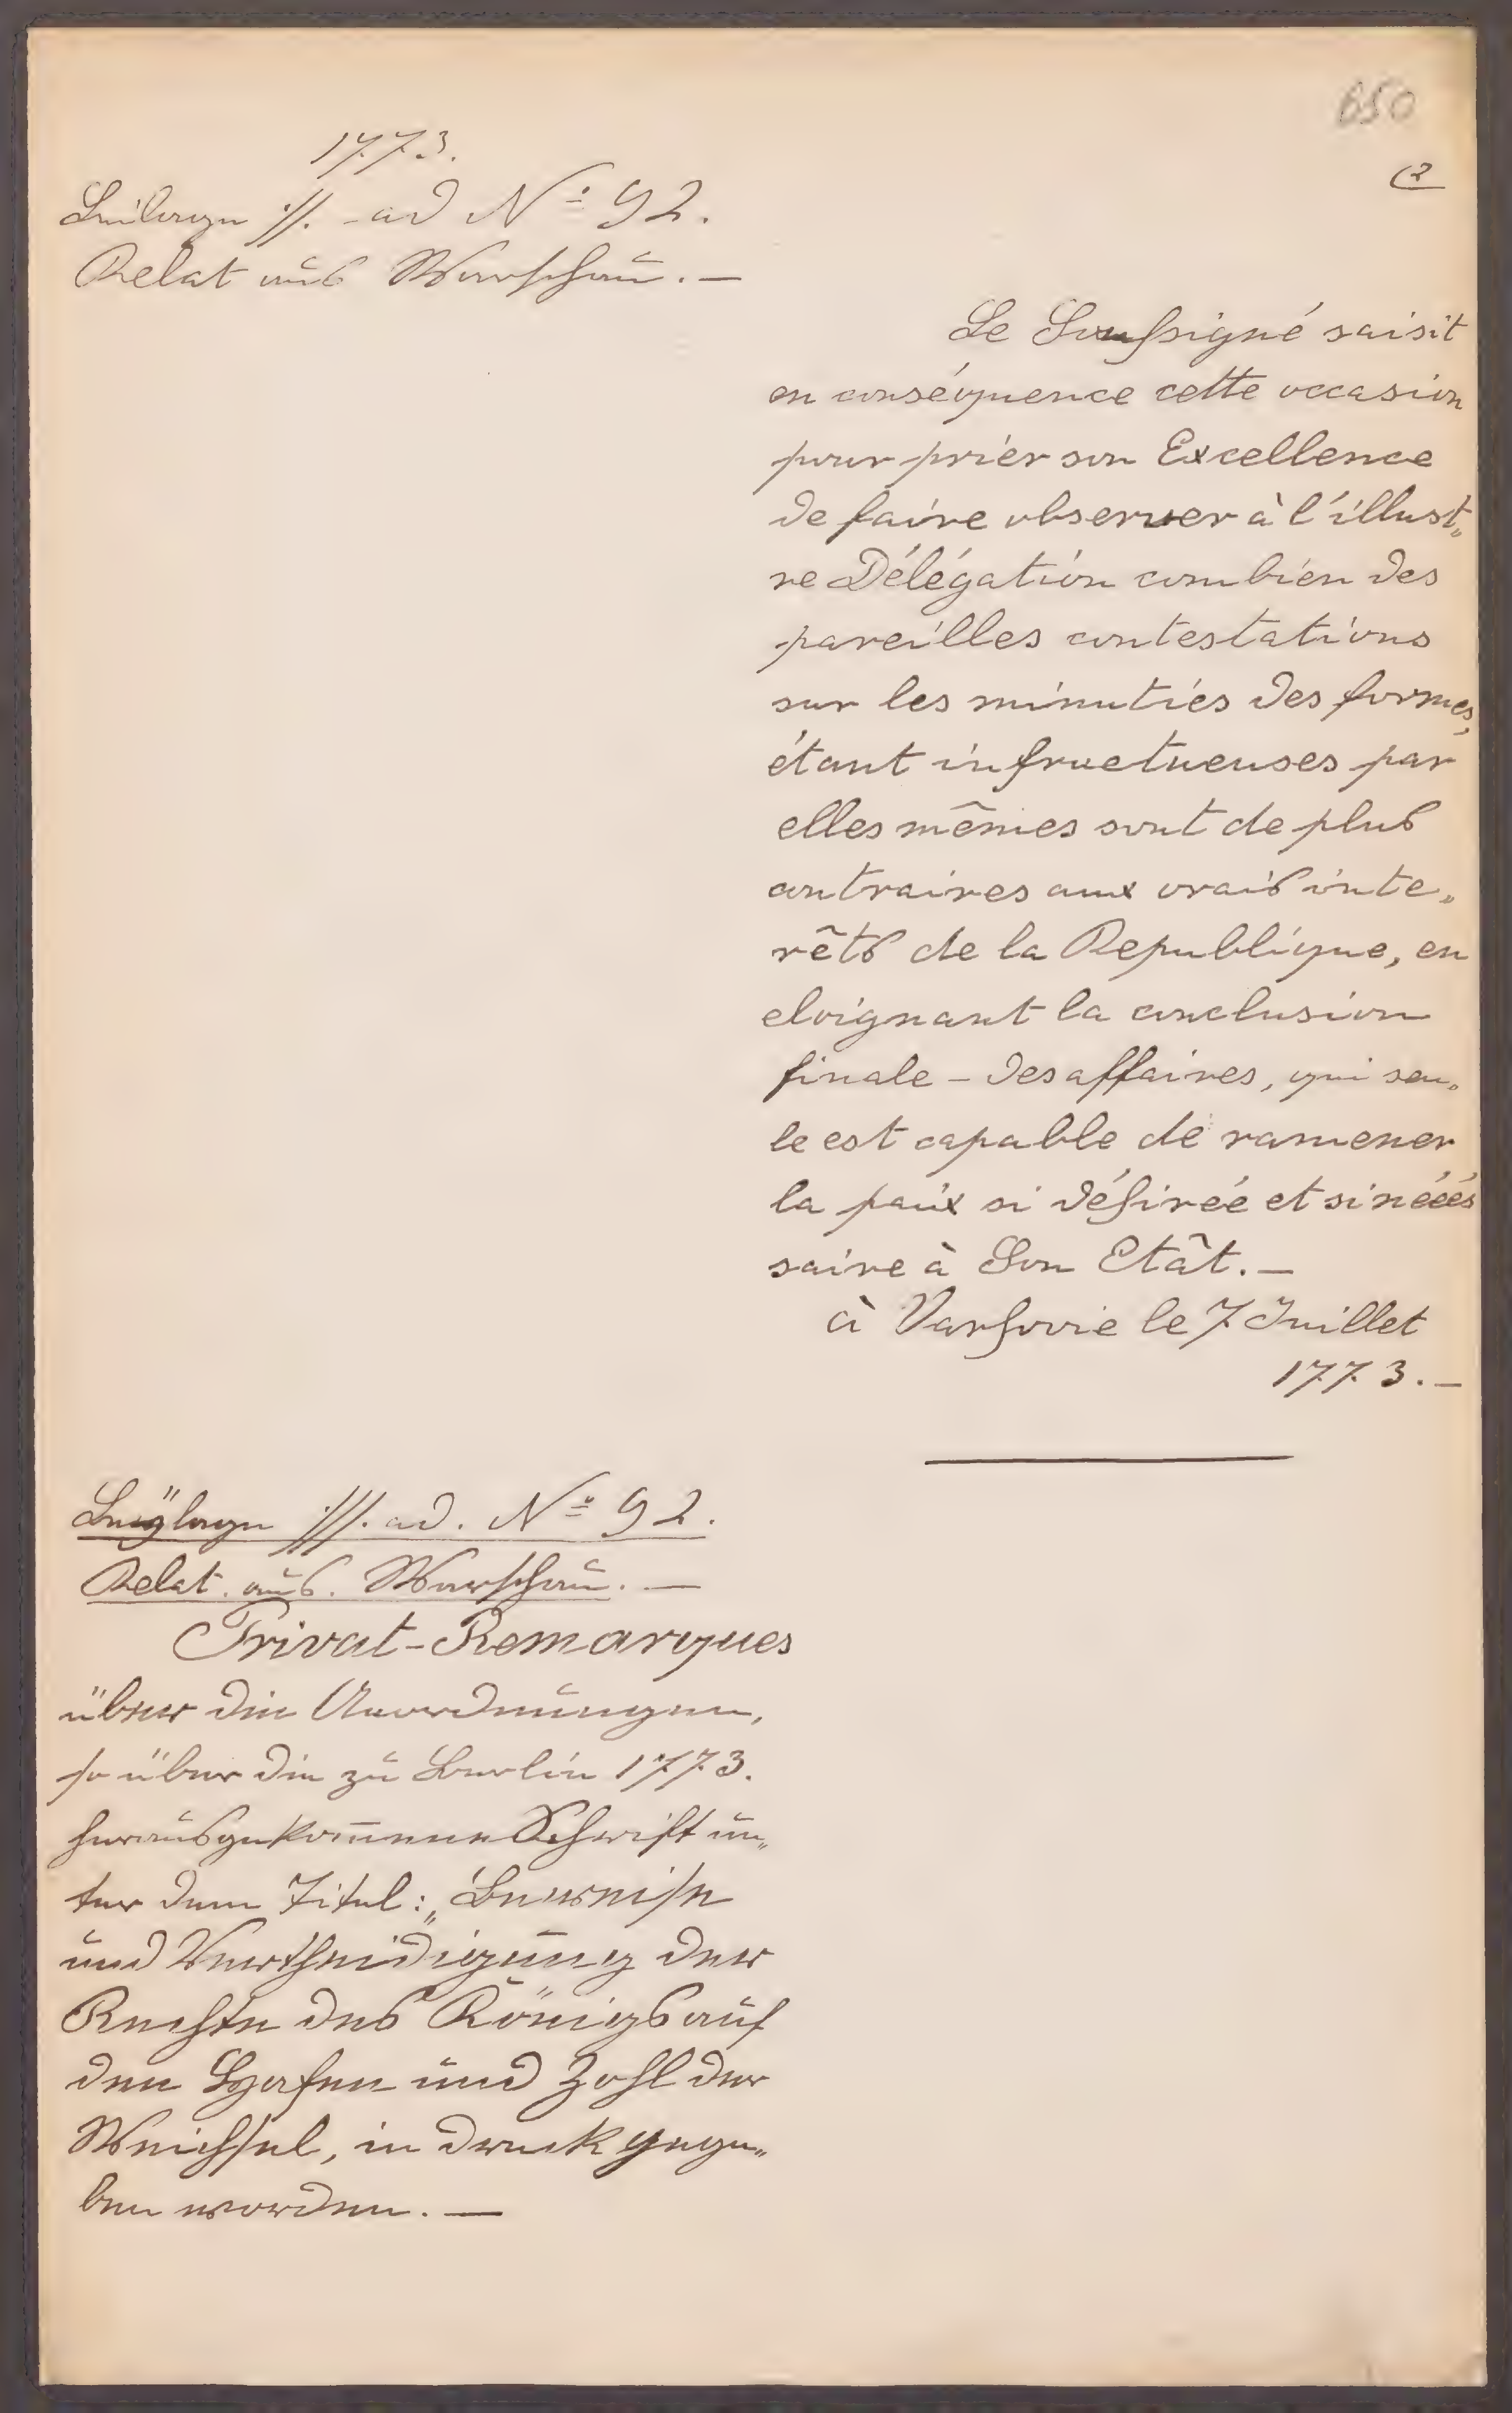 650
2
1773.
Beilage //. ad No 92.
Relat aus Warschau. —
Le Soussigné saisit
en conséquence cette occasion
pour prier son Excellence
de faire observer à l'illust„
re Délégation combien des
pareilles contestations
sur les minuties des formes,
étant infructueuses par
elles mêmes sont de plus
contraires aux vrais inte„
rêts de la Republique, en
eloignant la conclusion
finale – des affaires, qui seu„
le est capable de ramener
la paix si désirée et si néces
saire à Son Etât. —
à Varsovie le 7 Juillet
1773. —
Beÿlage ///. ad. No 92.
Relat. aus. Warschau. —
Privat-Remarques
über die Anordnungen,
so über die zu Berlin 1773.
herausgekom̄ene Schrift un„
ter dem Titel: „Beweise
und Vertheidigung der
Rechte des Königs auf
den Hafen und Zohl der
Weichsel, in druck gege„
ben worden. —